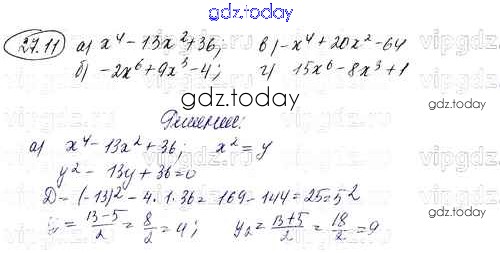 gdz.today
27.11 а) x⁴ - 13x² + 36; в) -x⁴ + 20x² - 64
б) -2x⁶ + 9x³ - 4; г) 15x⁶ - 8x³ + 1
gdz.today
Решение:
а) x⁴ - 13x² + 36; x² = y
y² - 13y + 36 = 0
D = (-13)² - 4·1·36 = 169 - 144 = 25 = 5²
y = (13-5)/2 = 8/2 = 4; y₂ = (13+5)/2 = 18/2 = 9
gdz.today